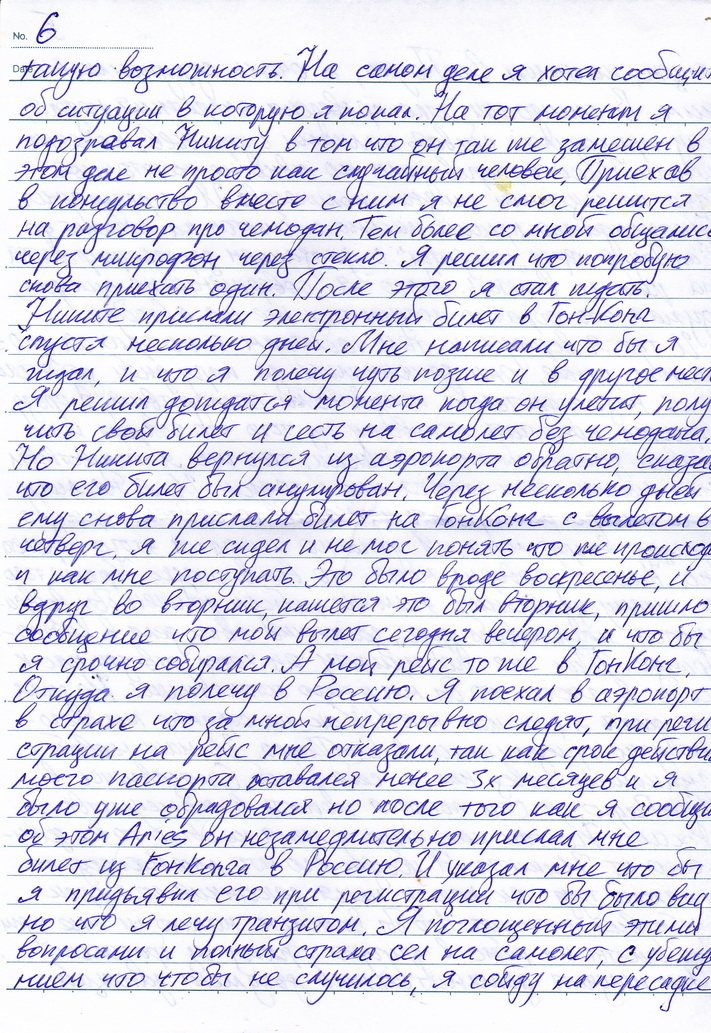 No. 6
Date
такую возможность. На самом деле я хотел сообщит
об ситуации в которую я попал. На тот момент я
подозревал Никиту в том что он так же замешен в
этом деле не просто как случайный человек. Приехав
в консульство вместе с ним я не смог решится
на разговор про чемодан. Тем более со мной общались
через микрофон через стекло. Я решил что попробую
снова приехать один. После этого я стал ждать.
Никите прислали электронный билет в ГонКонг
спустя несколько дней. Мне написали что бы я
ждал, и что я полечу чуть позже и в другое мест
Я решил дождатся момента когда он улетит, полу
чить свой билет и сесть на самолет без чемодана.
Но Никита вернулся из аэропорта обратно, сказа
что его билет был анулирован. Через несколько дней
ему снова прислали билет на ГонКонг с вылетом в
четверг, я же сидел и не мог понять что же происход
и как мне поступать. Это было вроде воскресенье, и
вдруг во вторник, кажется это был вторник, пришло
сообщение что мой вылет сегодня вечером, и что бы
я срочно собирался. А мой рейс то же в ГонКонг.
Откуда я полечу в Россию. Я поехал в аэропорт
в страхе что за мной непрерывно следят, при реги
страции на рейс мне отказали, так как срок действи
моего паспорта оставался менее 3х месяцев и я
было уже обрадовался но после того как я сообщи
об этом Aries он незамедлительно прислал мне
билет из ГонКонга в Россию. И указал мне что бы
я предьявил его при регистрации что бы было вид
но что я лечу транзитом. Я поглощенный этими
вопросами и полный страха сел на самолет, с убежд
нием что чтобы не случилось, я сойду на пересадке